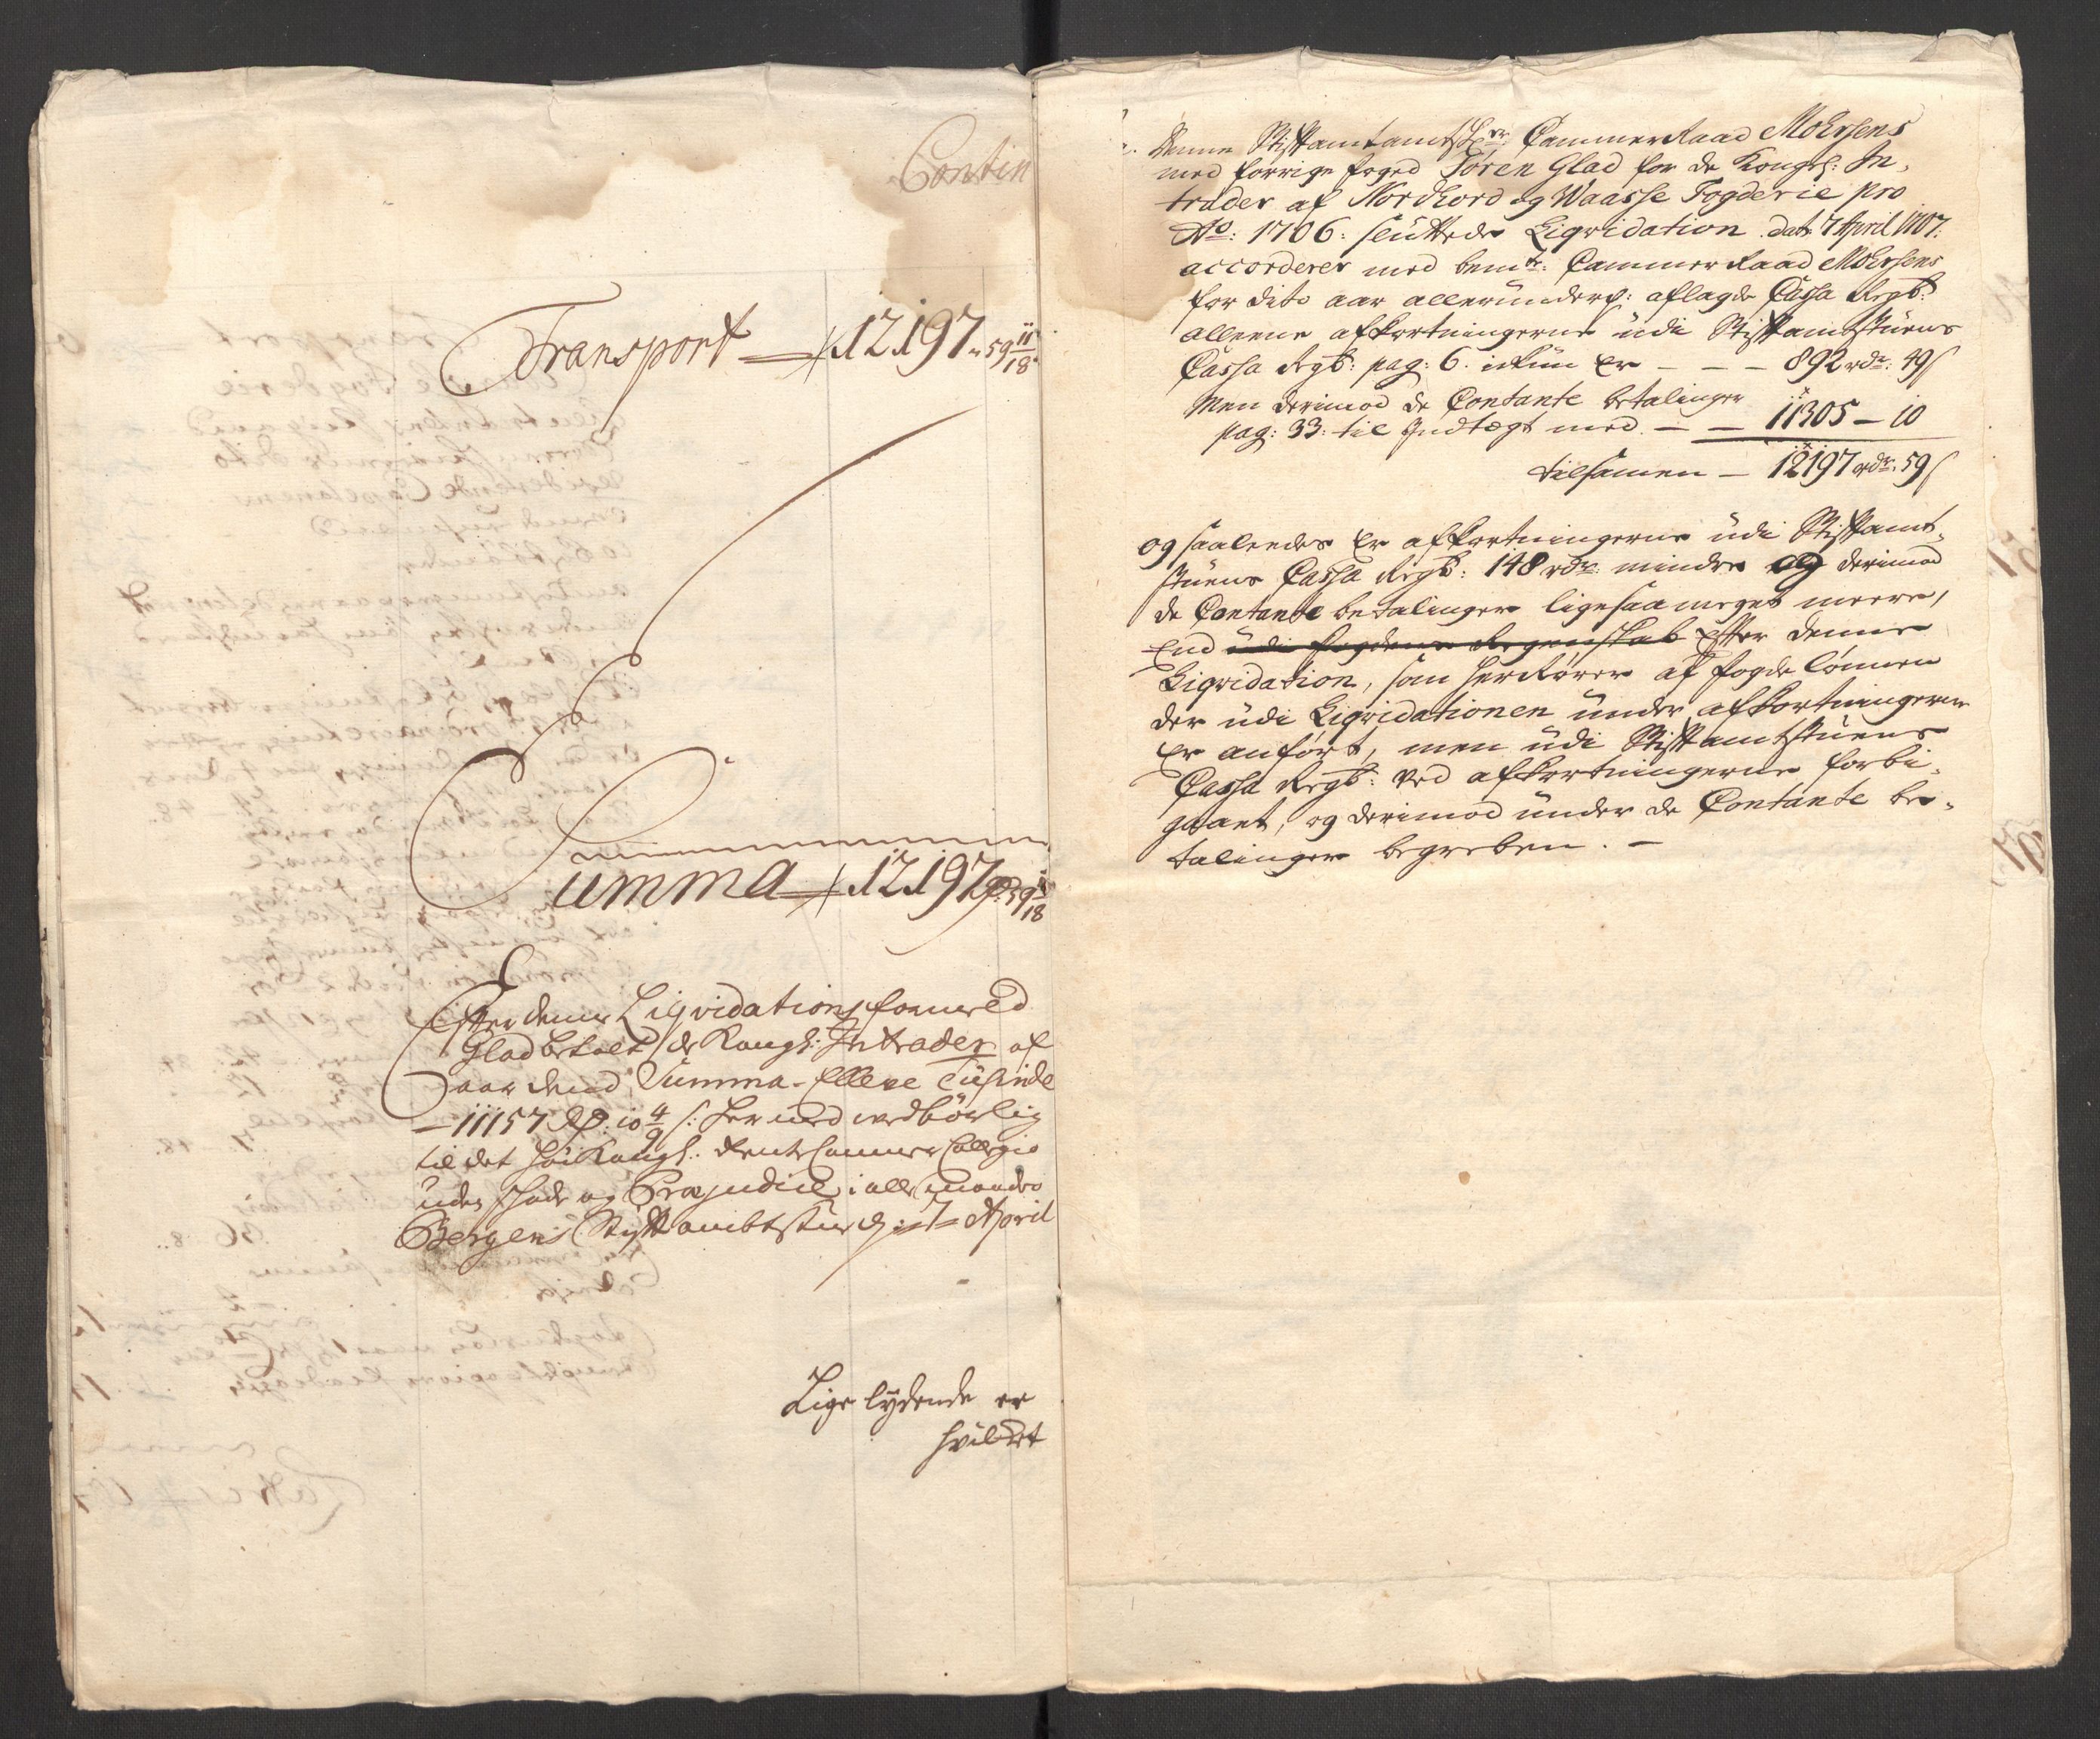 Contin
Transport — 12197 „ 59 11/18
Summa — 12197 Rd 59 11/18
Efter denne Liqvidation
Glad betalt de Kongl: Intrader af
aar dend Summa Elleve Tüsinde
— 11157 Rd: 10 4/9 s: her med
til det Høi Kongl: Rente Cammer Collegio
uden skade og Præjudice i alle maader
Bergens Stiftambtstue d. 7 April
Lige lydende er
hvilket
Denne Stiftamtsskr: Cammer Raad Moersens
med forrige foged Søren Glad for de Kongel: In-
trader af Nordhord og Waasse Fogderie pro
Ao: 1706: sluttede Liqvidation dat: 7 April 1707:
accorderer med bemte: Cammer Raad Moersens
for dito aar allerunderd: aflagde Cassa Regsk:
alleene afkortningerne udi Stiftamtstuens
Cassa Regsk: pag: 6. ickun er — — — 892 rdr: 49 s
Men derimod de Contante betalinger
pag: 33: til Indtægt med — — 11305 — 10
tilsamen — 12197 rdr: 59 s
og saaledes er afkortningerne udi Stiftamt-
stuens Cassa Regsk: 148 rdr: mindre og derimod
de Contante betalinger ligesaa meget meere,
End udi fogdens Regenskab efter denne
Liqvidation, som herrører af fogde lønnen
der udi Liqvidationen under afkortningerne
er anført, men udi Stiftamtstuens
Cassa Regsk: ved afkortningerne forbi-
gaaet, og derimod under de Contante be-
talinger begreben. —